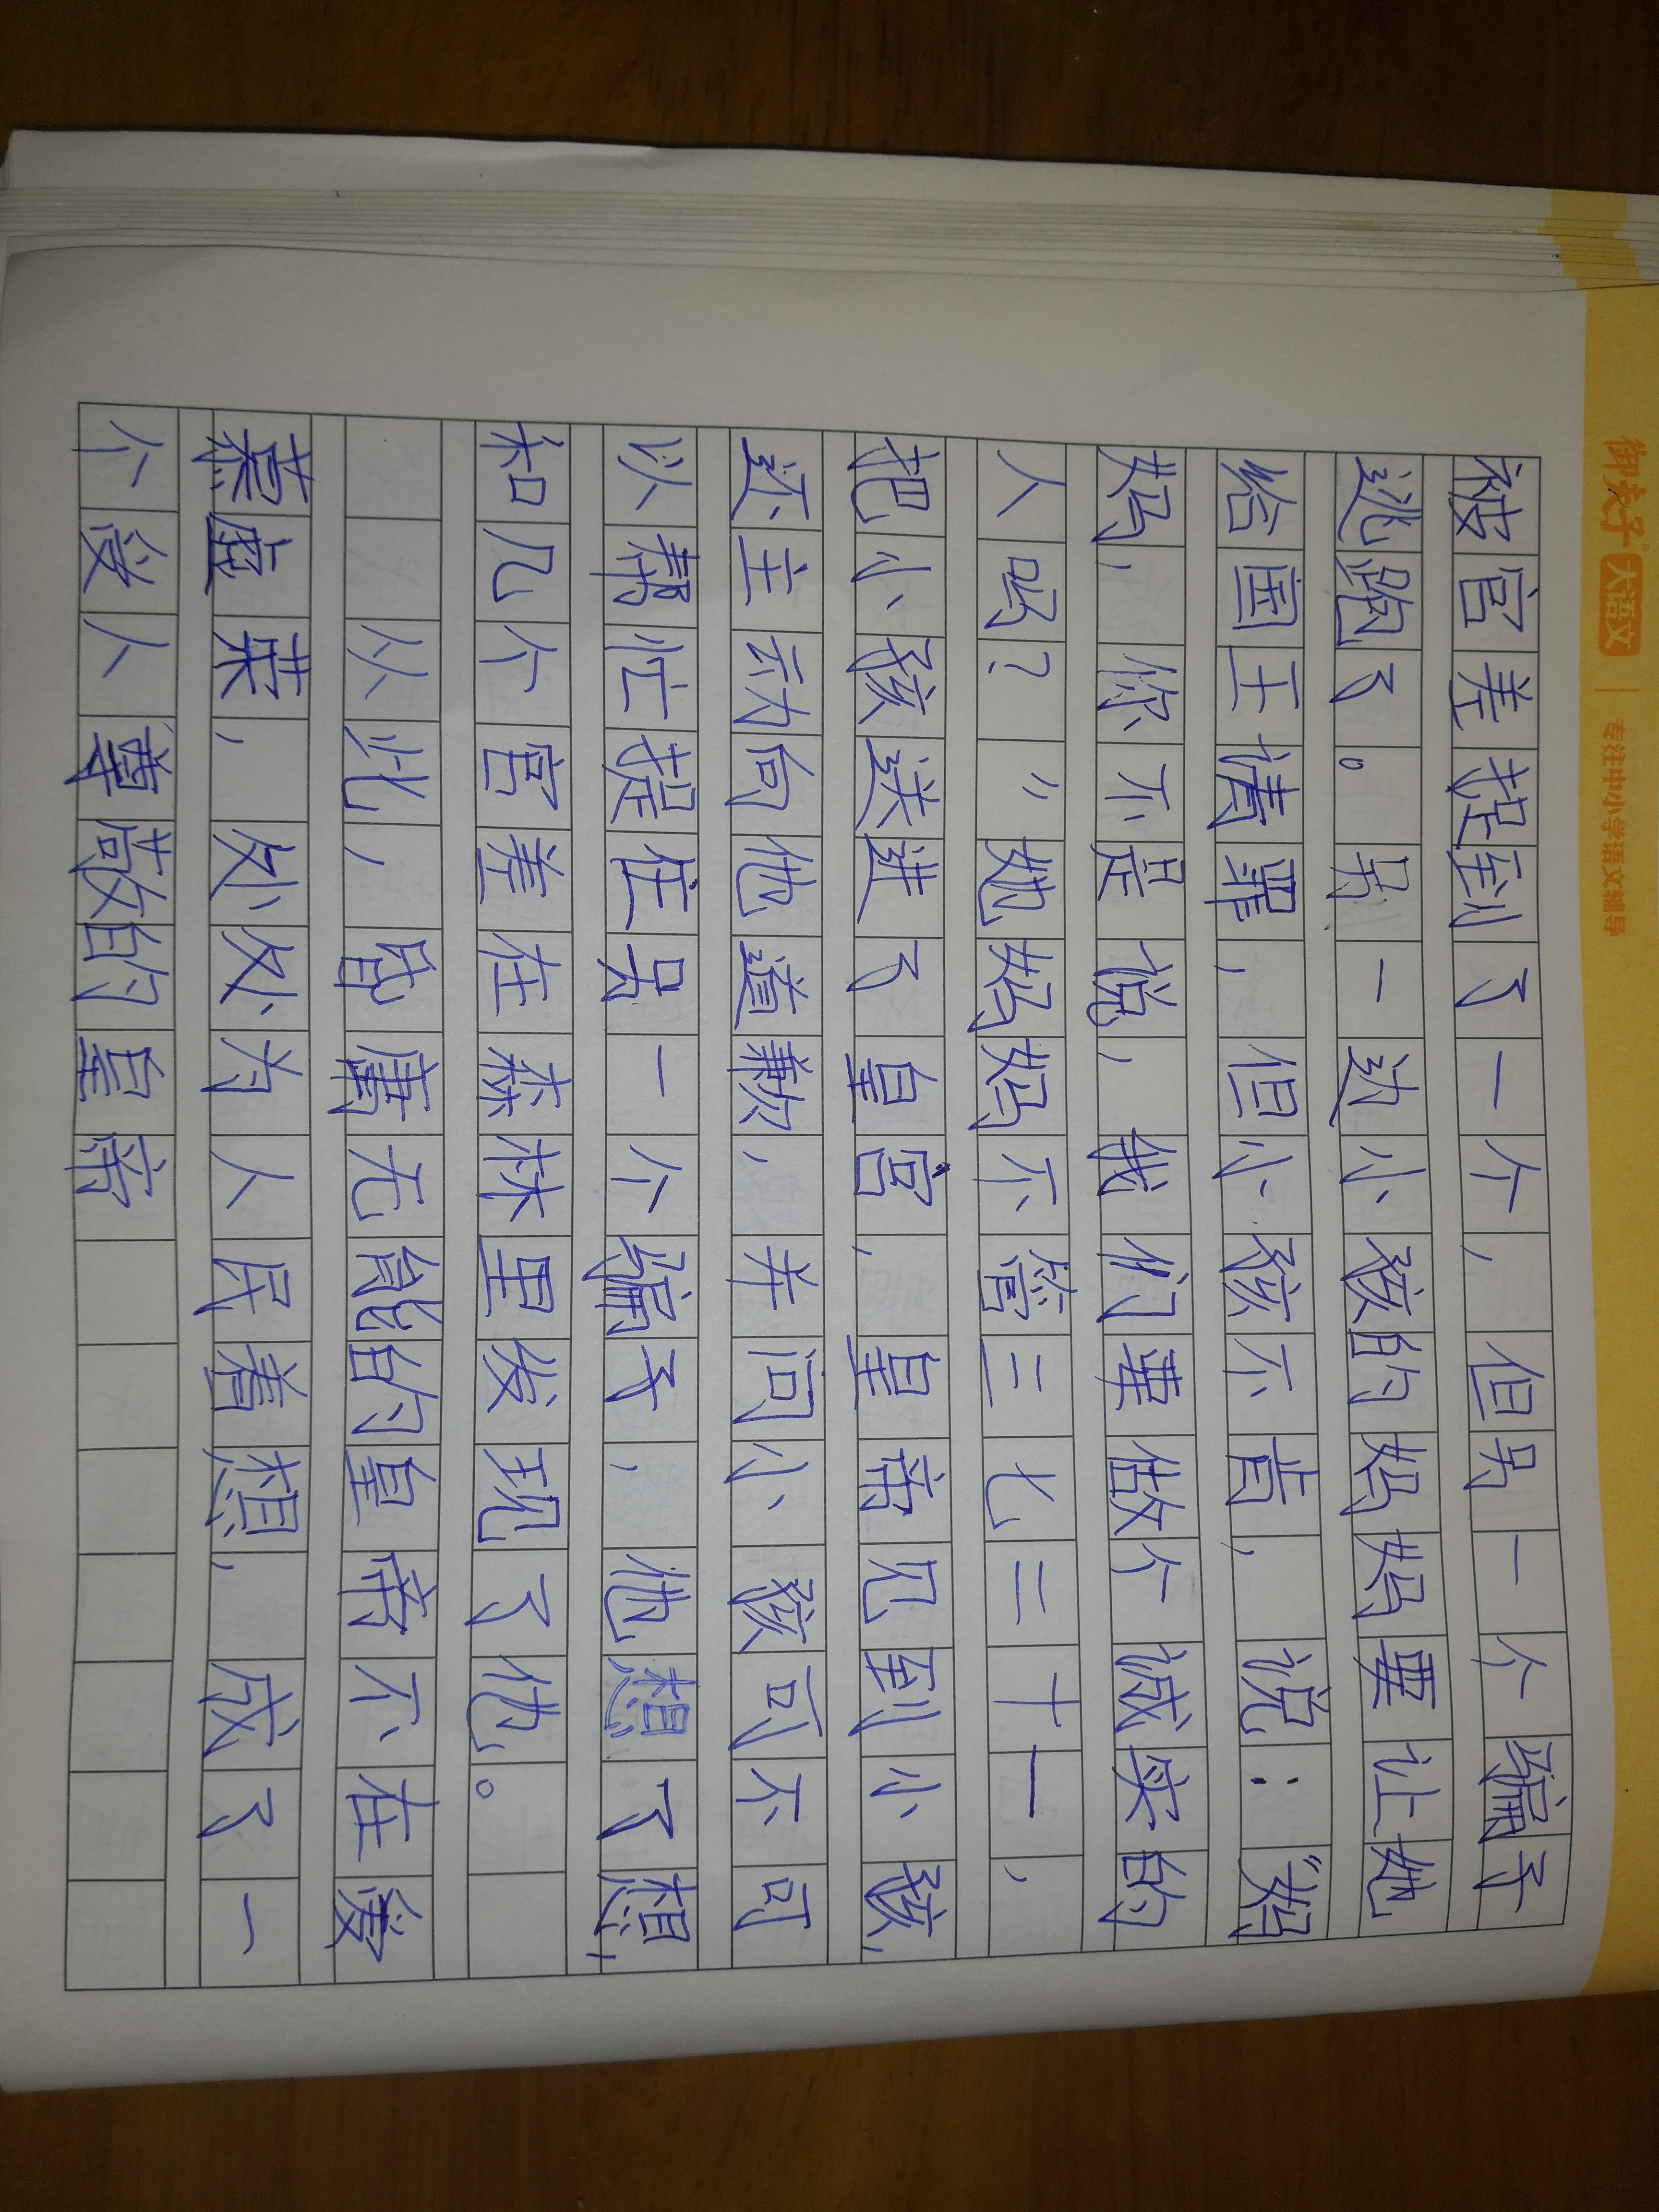 御夫子 大语文 | 专注中小学语文辅导
被官差捉到了一个,但另一个骗子
逃跑了。另一边小孩的妈妈要让她
给国王请罪,但小孩不肯,说:“妈
妈,你不是说,我们要做个诚实的
人吗?”她妈妈不管三七二十一,
把小孩送进了皇宫,皇帝见到小孩,
还主动向他道歉,并问小孩可不可
以帮忙捉住另一个骗子,他想了想,
和几个官差在森林里发现了他。
从此,昏庸无能的皇帝不在爱
慕虚荣,处处为人民着想,成了一
个受人尊敬的皇帝